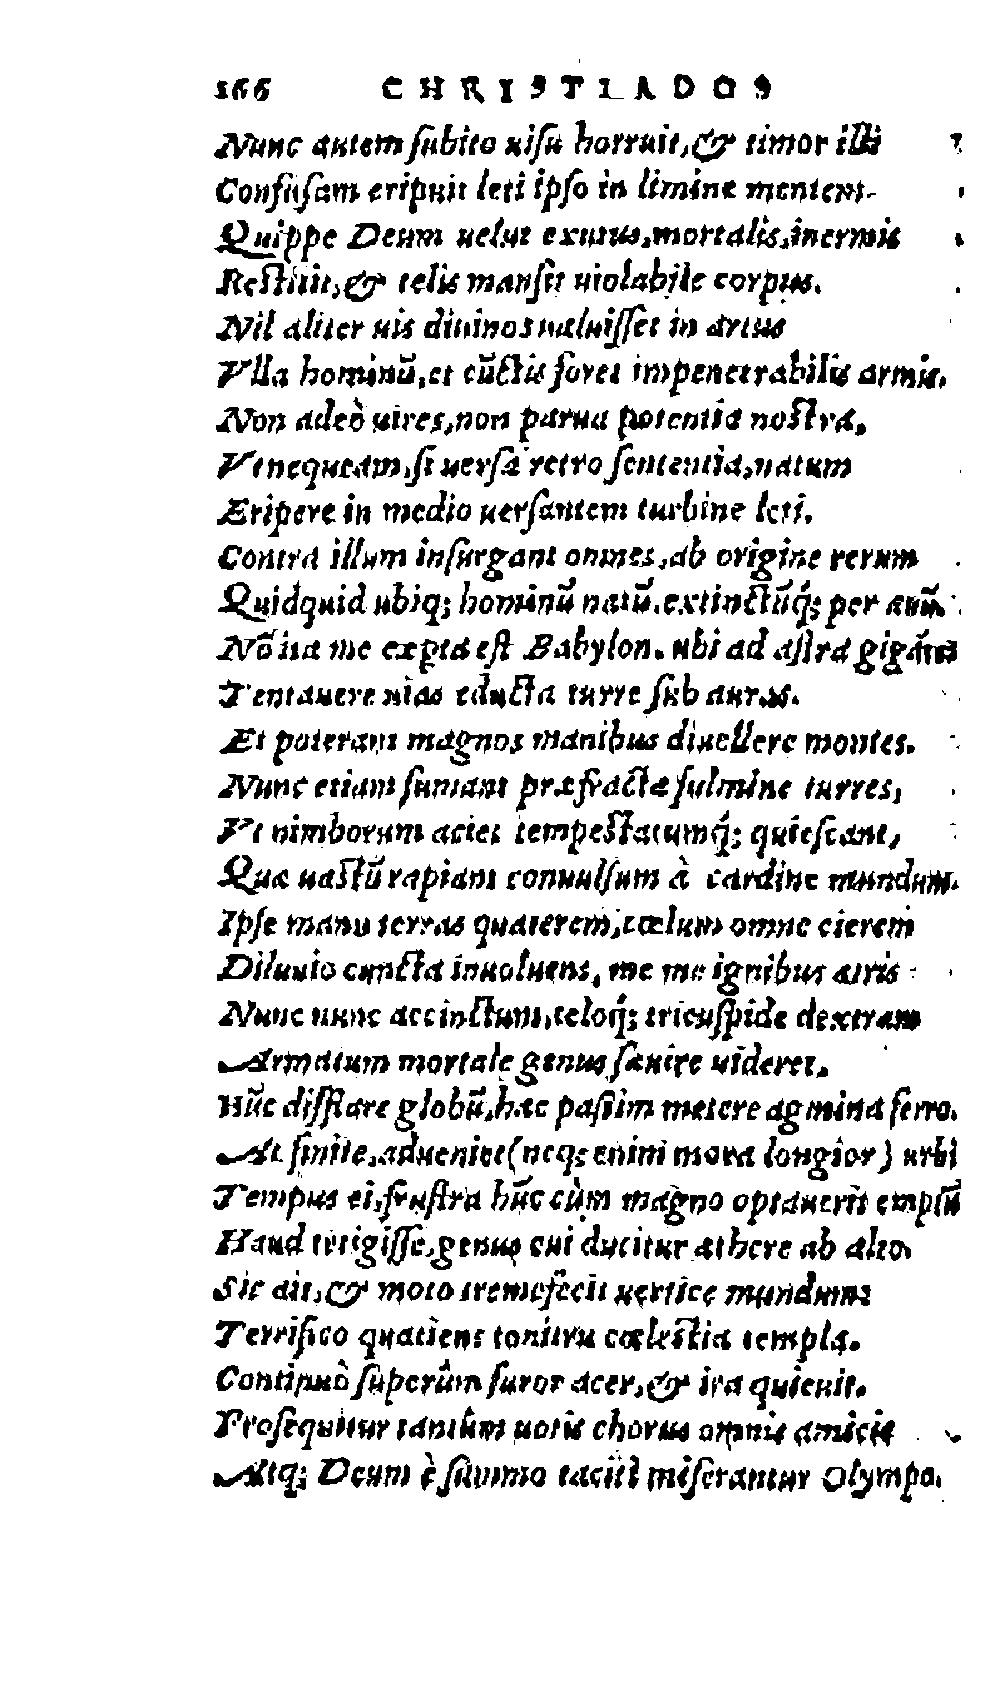 166 CHRISTIADOS
Nunc autem ſubito uiſu horruit, & timor illi
Confuſam eripuit leti ipſo in limine mentem.
Quippe Deum uelut exutus, mortalis, inermis
Reſtitit, & telis manſit uiolabile corpus.
Nil aliter uis diuinos ualuiſſet in artus
Vlla hominũ, et cũctis foret impenetrabilis armis.
Non adeò uires, non parua potentia noſtra,
Vt nequeam, ſi uerſa retro ſententia, natum
Eripere in medio uerſantem turbine leti.
Contra illum inſurgant omnes, ab origine rerum
Quidquid ubiq; hominũ natũ, extinctũq́; per æuũ.
Nõ ita me experta eſt Babylon, ubi ad aſtra gigãtes
Tentauere uias educta turre ſub auras.
Et poterant magnos manibus diuellere montes.
Nunc etiam fumant præfractæ fulmine turres,
Vt nimborum acies tempeſtatumq́; quieſcant,
Quæ uaſtũ rapiant conuulſum à cardine mundum.
Ipſe manu terras quaterem, cœlum omne cierem
Diluuio cuncta inuoluens, me me ignibus atris
Nunc nunc accinctum, teloq́; tricuſpide dextram
Armatum mortale genus ſæuire uideret.
Hũc difflare globũ, hæc paſſim metere agmina ferro.
At ſinite, adueniet (neq; enim mora longior) urbi
Tempus ei, fruſtra hũc cùm magno optauerit emptũ
Haud tetigiſſe, genus cui ducitur æthere ab alto.
Sic ait, & moto tremefecit uertice mundum
Terrifico quatiens tonitru cœleſtia templa.
Continuò ſuperûm furor acer, & ira quieuit.
Proſequitur tantùm uotis chorus omnis amicis
Atq; Deum è ſummo taciti miſerantur Olympo.